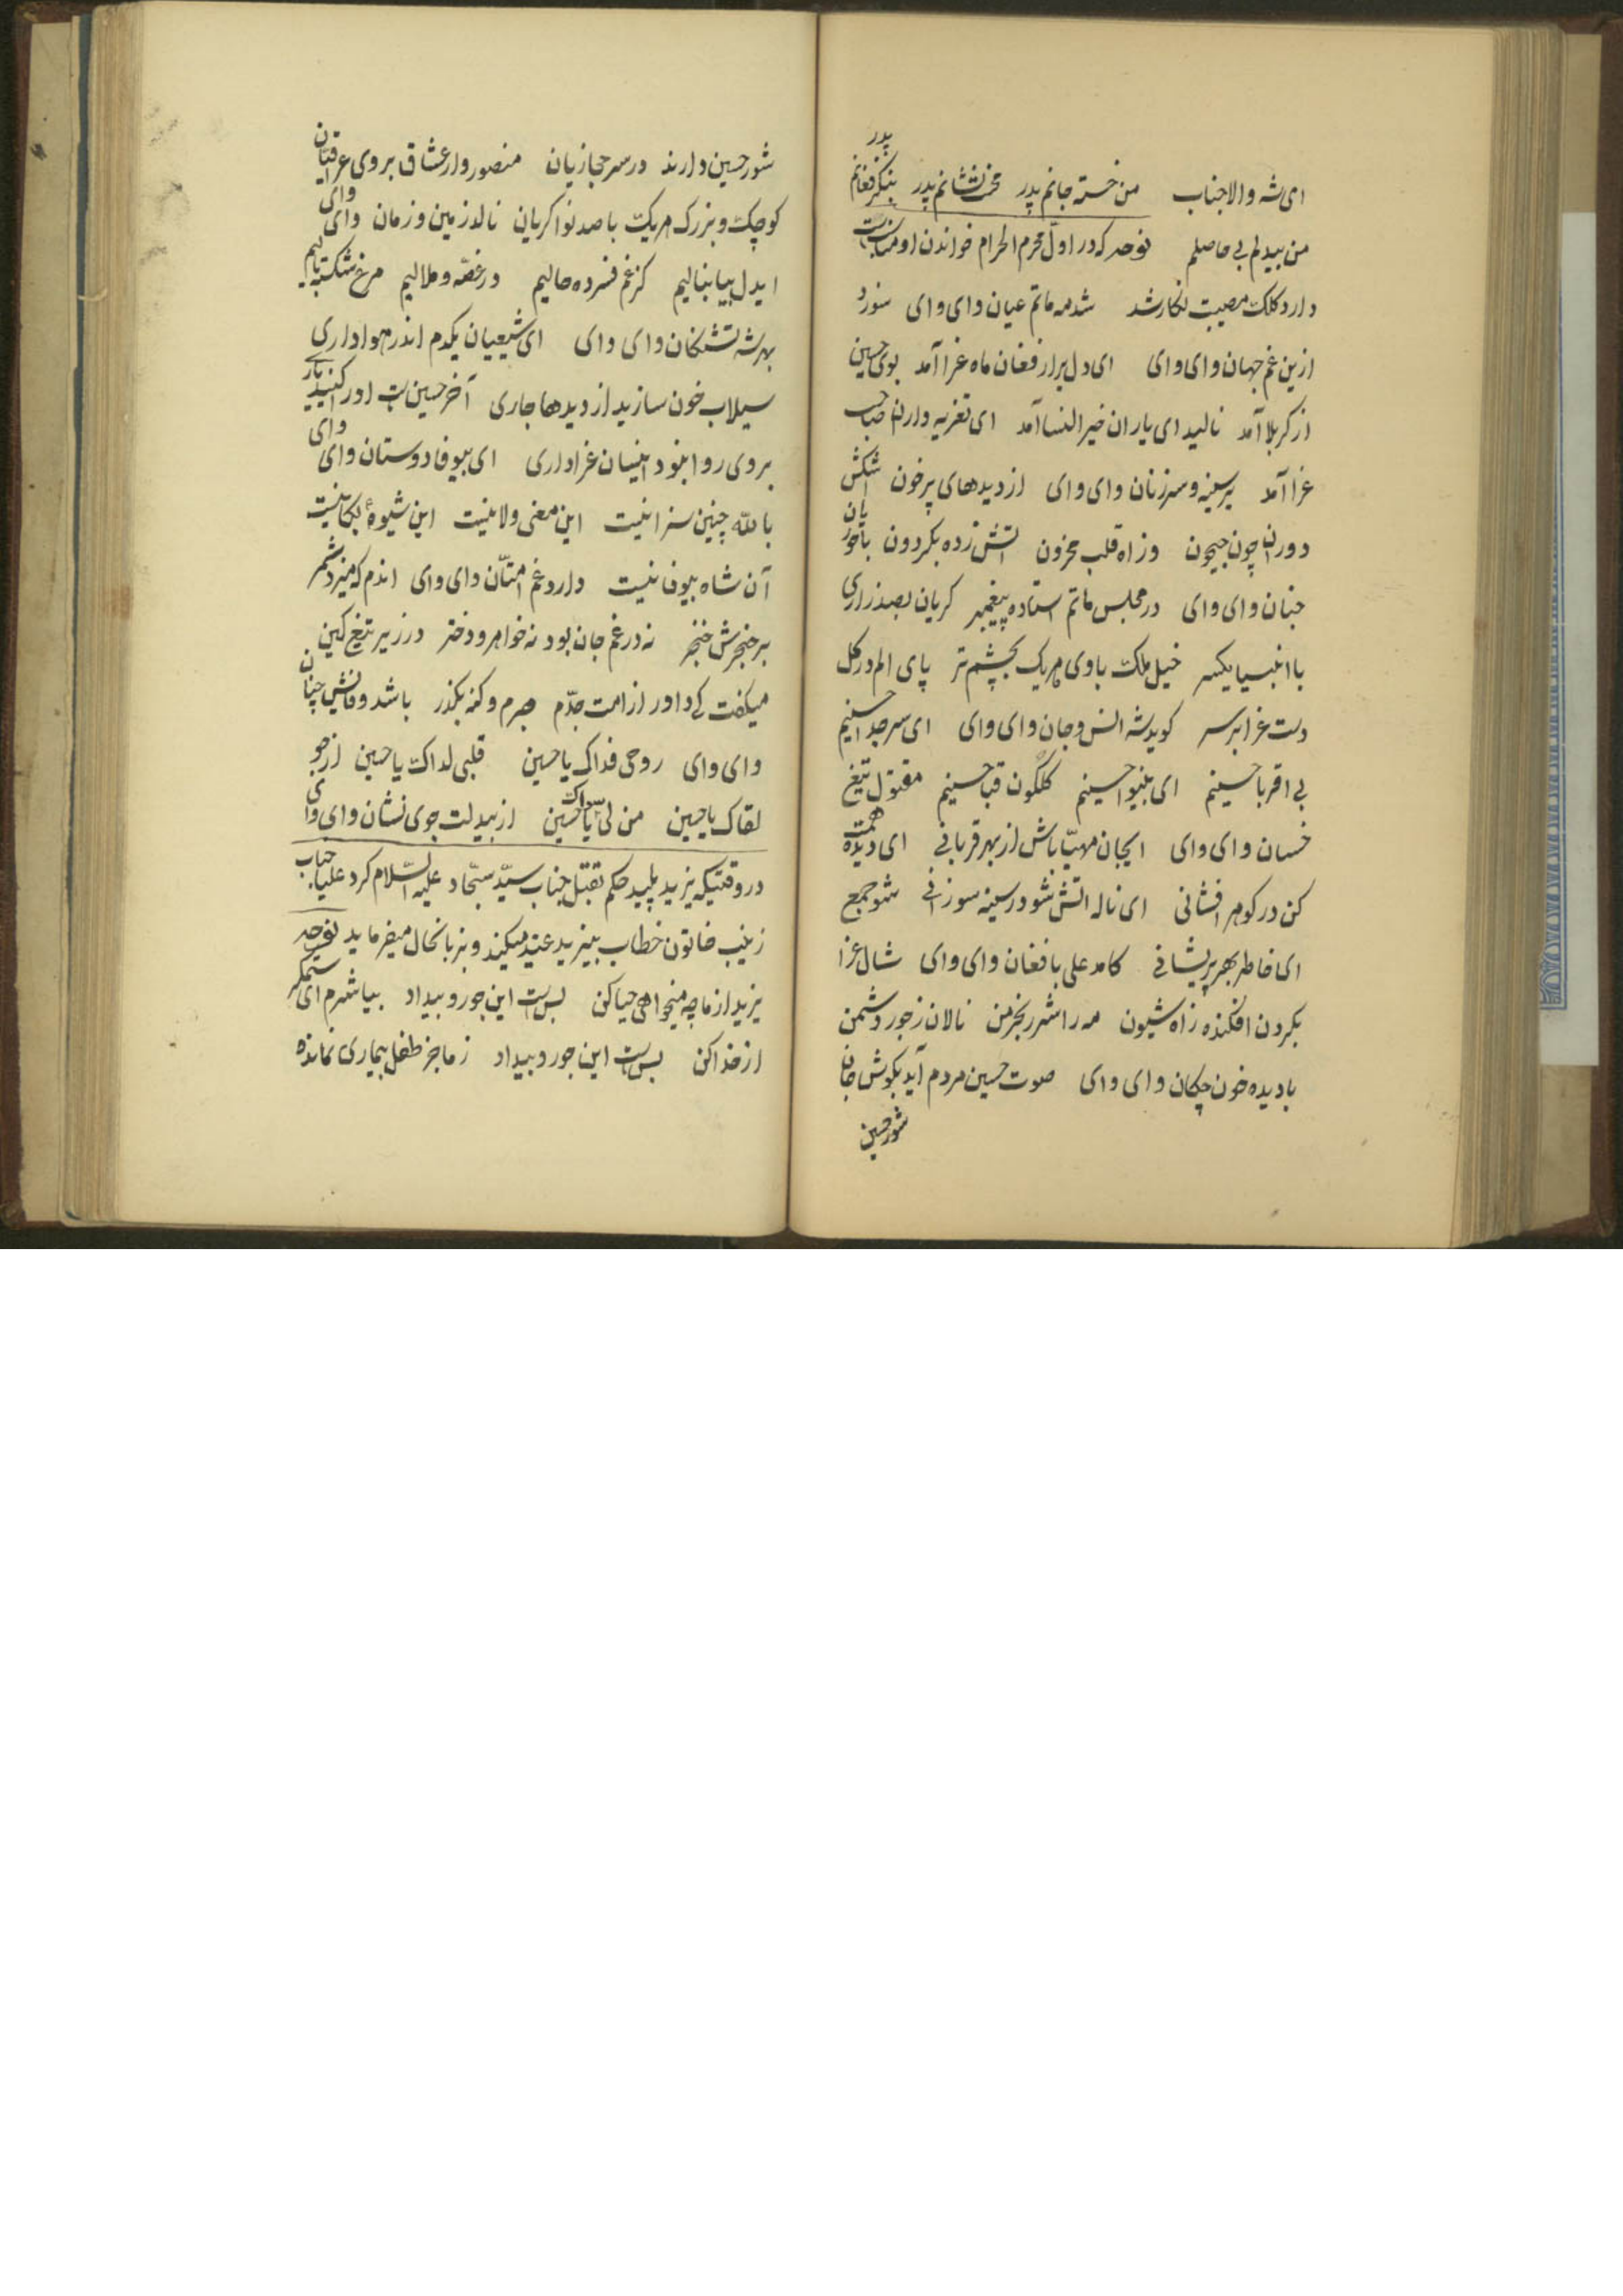 ای شه والاجناب من خسته جانم پدر محنت نشانم پدر بنگر فغانم پدر
من بیدلم بی حاصلم نوحه که در اول محرم الحرام خواندن او مناسبت
دارد کلک مصیبت نگار شد شد مه ماتم عیان وای وای سوزد
ازین غم جهان وای وای ای دل برار فغان ماه عزا آمد بوی حسین
از کربلا آمد نالید ای یاران خیر النسا آمد ای تعزیه داران صاحب
عزا آمد بر سینه و سر زنان وای وای از دیدهای پر خون اشکش
دوران چون جیحون وز اه قلب محزون اتش زده بکردون با حوریان
جنان وای وای در مجلس ماتم استاده پیغمبر کریان بصد زاری
با انبیا یکسر خیل ملک باوی هریک بچشم تر پای الم در کل
دست عزا بر سر کوید شه انس و جان وای وای ای سر جدا حسینم
بی اقربا حسینم ای بینوا حسینم کلگون قبا حسینم مقتول تیغ
خسان وای وای ایجان مهیّا باش از بهر قربانی ای دیده همت
کن در کوهر افشانی ای ناله اتش شو در سینه سوزانی شو جمع
ای خاطر بهر پریشانی کامد علی با فغان وای وای شال عزا
بکردون افکنده زاه شیون مه را شرر بخرمن نالان زجور دشمن
با دیده خون چکان وای وای صوت حسین مردم آید بکوش جان
شور حسین
شور حسین دارند در سر حجازیان منصور وار عشاق بروی عراقیان
کوچک و بزرک هریک با صد نوا کریان نالد زمین و زمان وای وای
ایدل بیا بنالیم کز غم فسرده حالیم در غصّه و ملالیم مرغ شکسته بالیم
بهر شه تشنکان وای وای ای شیعیان یکدم اندر هواداری
سیلاب خون سازید از دیدها جاری آخر حسین است اورا کنید یاری
بروی روا نبود اینسان عزاداری ای بیوفا دوستان وای وای
بالله چنین سزا نیست این معنی ولا نیست این شیوۀ بکا نیست
آن شاه بیوفا نیست دارد غم امتّان وای وای اندم که میزد شمر
بر حنجرش خنجر نه در غم جان بود نه خواهر و دختر در زیر تیغ کین
میکفت کی داور از امت جدّم جرم و کنه بکذر باشد وفایش چنان
وای وای روحی فداک یا حسین قلبی لداک یا حسین ارجو
لقاک یا حسین من لی سواک یا حسین از بیدلت جوی نشان وای وای
در وقتیکه یزید پلید حکم بقتل جناب سیّد سجّاد علیه السّلام کرد علیا جناب
زینب خاتون خطاب بیزید عنید میکند و بزبانحال میفرماید نوحه
یزید از ما چه میخواهی حیا کن بس است این جور و بیداد بیا شرم ای ستمکر
از خدا کن بس است این جور و بیداد ز ما جز طفل بیماری نمانده